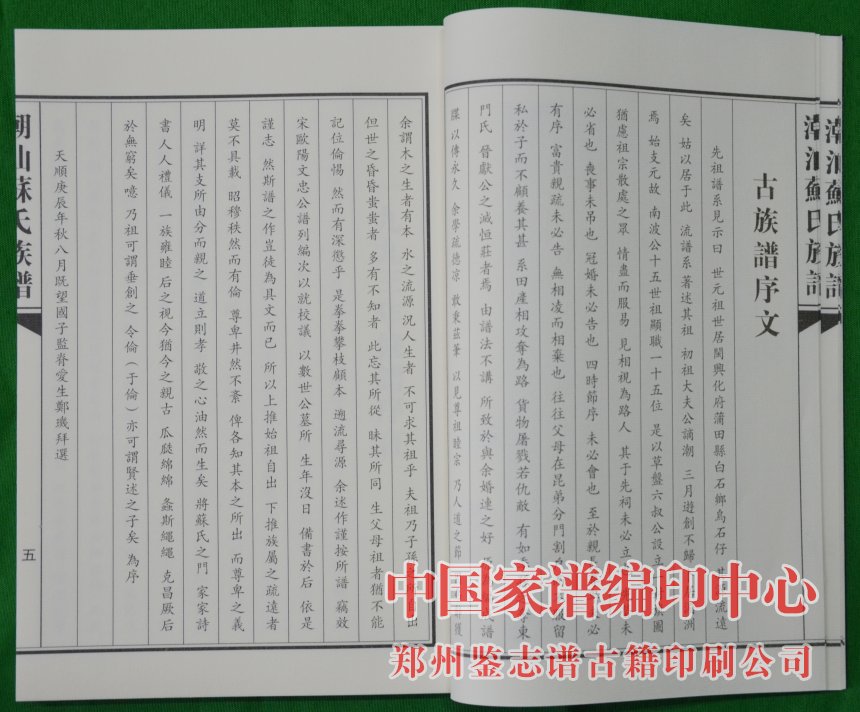 潮汕蘇氏族譜
古族譜序文
先祖譜系見示曰 世元祖世居閩興化府蒲田縣白石鄉烏石仔 流遠
矣 姑以居于此 流譜系著述其祖 初祖大夫公謫潮 三月遊創不歸 洲
焉 始支元故 南波公十五世祖顯職一十五位 是以草盤六叔公設立 圖
猶慮祖宗散處之眾 情盡而服易 見相視為路人 其于先祠未必立 未
必省也 喪事未吊也 冠婚未必告也 四時節序 未必會也 至於親 必
有序 富貴親疏未必告 無相凌而相棄也 往往父母在昆弟分門割 留
私於子而不顧養其甚 系田產相攻奪為路 貨物屠戮若仇敵 有如 東
門氏 晉獻公之滅恒莊者焉 由譜法不講 所致於與余婚連之好 譜
牒 以傳永久 余學疏德凉 敢秉茲筆 以見尊祖睦宗 乃人道之節 獲
余謂木之生者有本 水之流源 況人生者 不可求其祖乎 夫祖乃子孫 自出
但世之昏昏蚩蚩者 多有不知者 此忘其所從 昧其所同 生父母祖者猶不能
記位倫惕 然而有深懲乎 是拳拳攀枝顧本 遡流尋源 余述作謹按所譜 竊效
宋歐陽文忠公譜列編次以就校議 以數世公墓所 生年沒日 備書於后 依是
謹志 然斯譜之作豈徒為具文而已 所以上推始祖自出 下推族屬之疏遠者
莫不具載 昭穆秩然而有倫 尊卑井然不紊 俾各知其本之所出 而尊卑之義
明 詳其支所由分而親之 道立則孝 敬之心油然而生矣 將蘇氏之門 家家詩
書人人禮儀 一族雍睦 后之視今猶今之親古 瓜瓞綿綿 螽斯繩繩 克昌厥后
於無窮矣 噫 乃祖可謂垂創之 令倫（于倫）亦可謂賢述之子矣 為序
天順庚辰年秋八月既望國子監眷愛生鄭璣拜選
潮汕蘇氏族譜
五
中国家谱编印中心
郑州鉴志谱古籍印刷公司